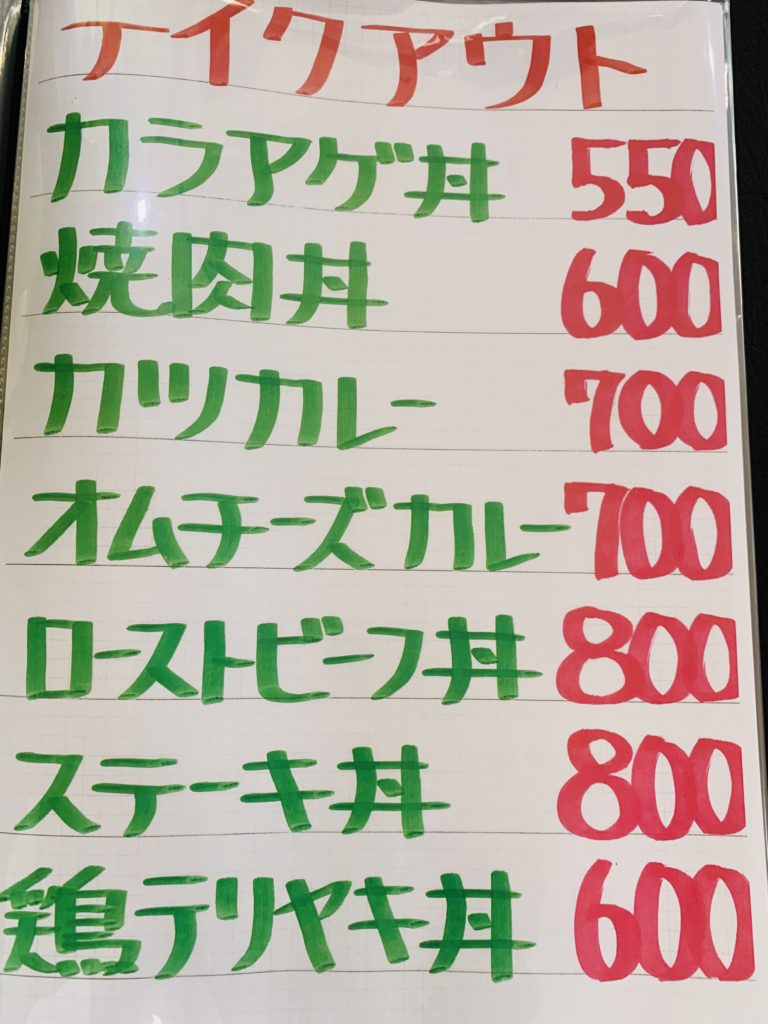 テイクアウト
カラアゲ丼 550
焼肉丼 600
カツカレー 700
オムチーズカレー 700
ローストビーフ丼 800
ステーキ丼 800
鶏テリヤキ丼 600